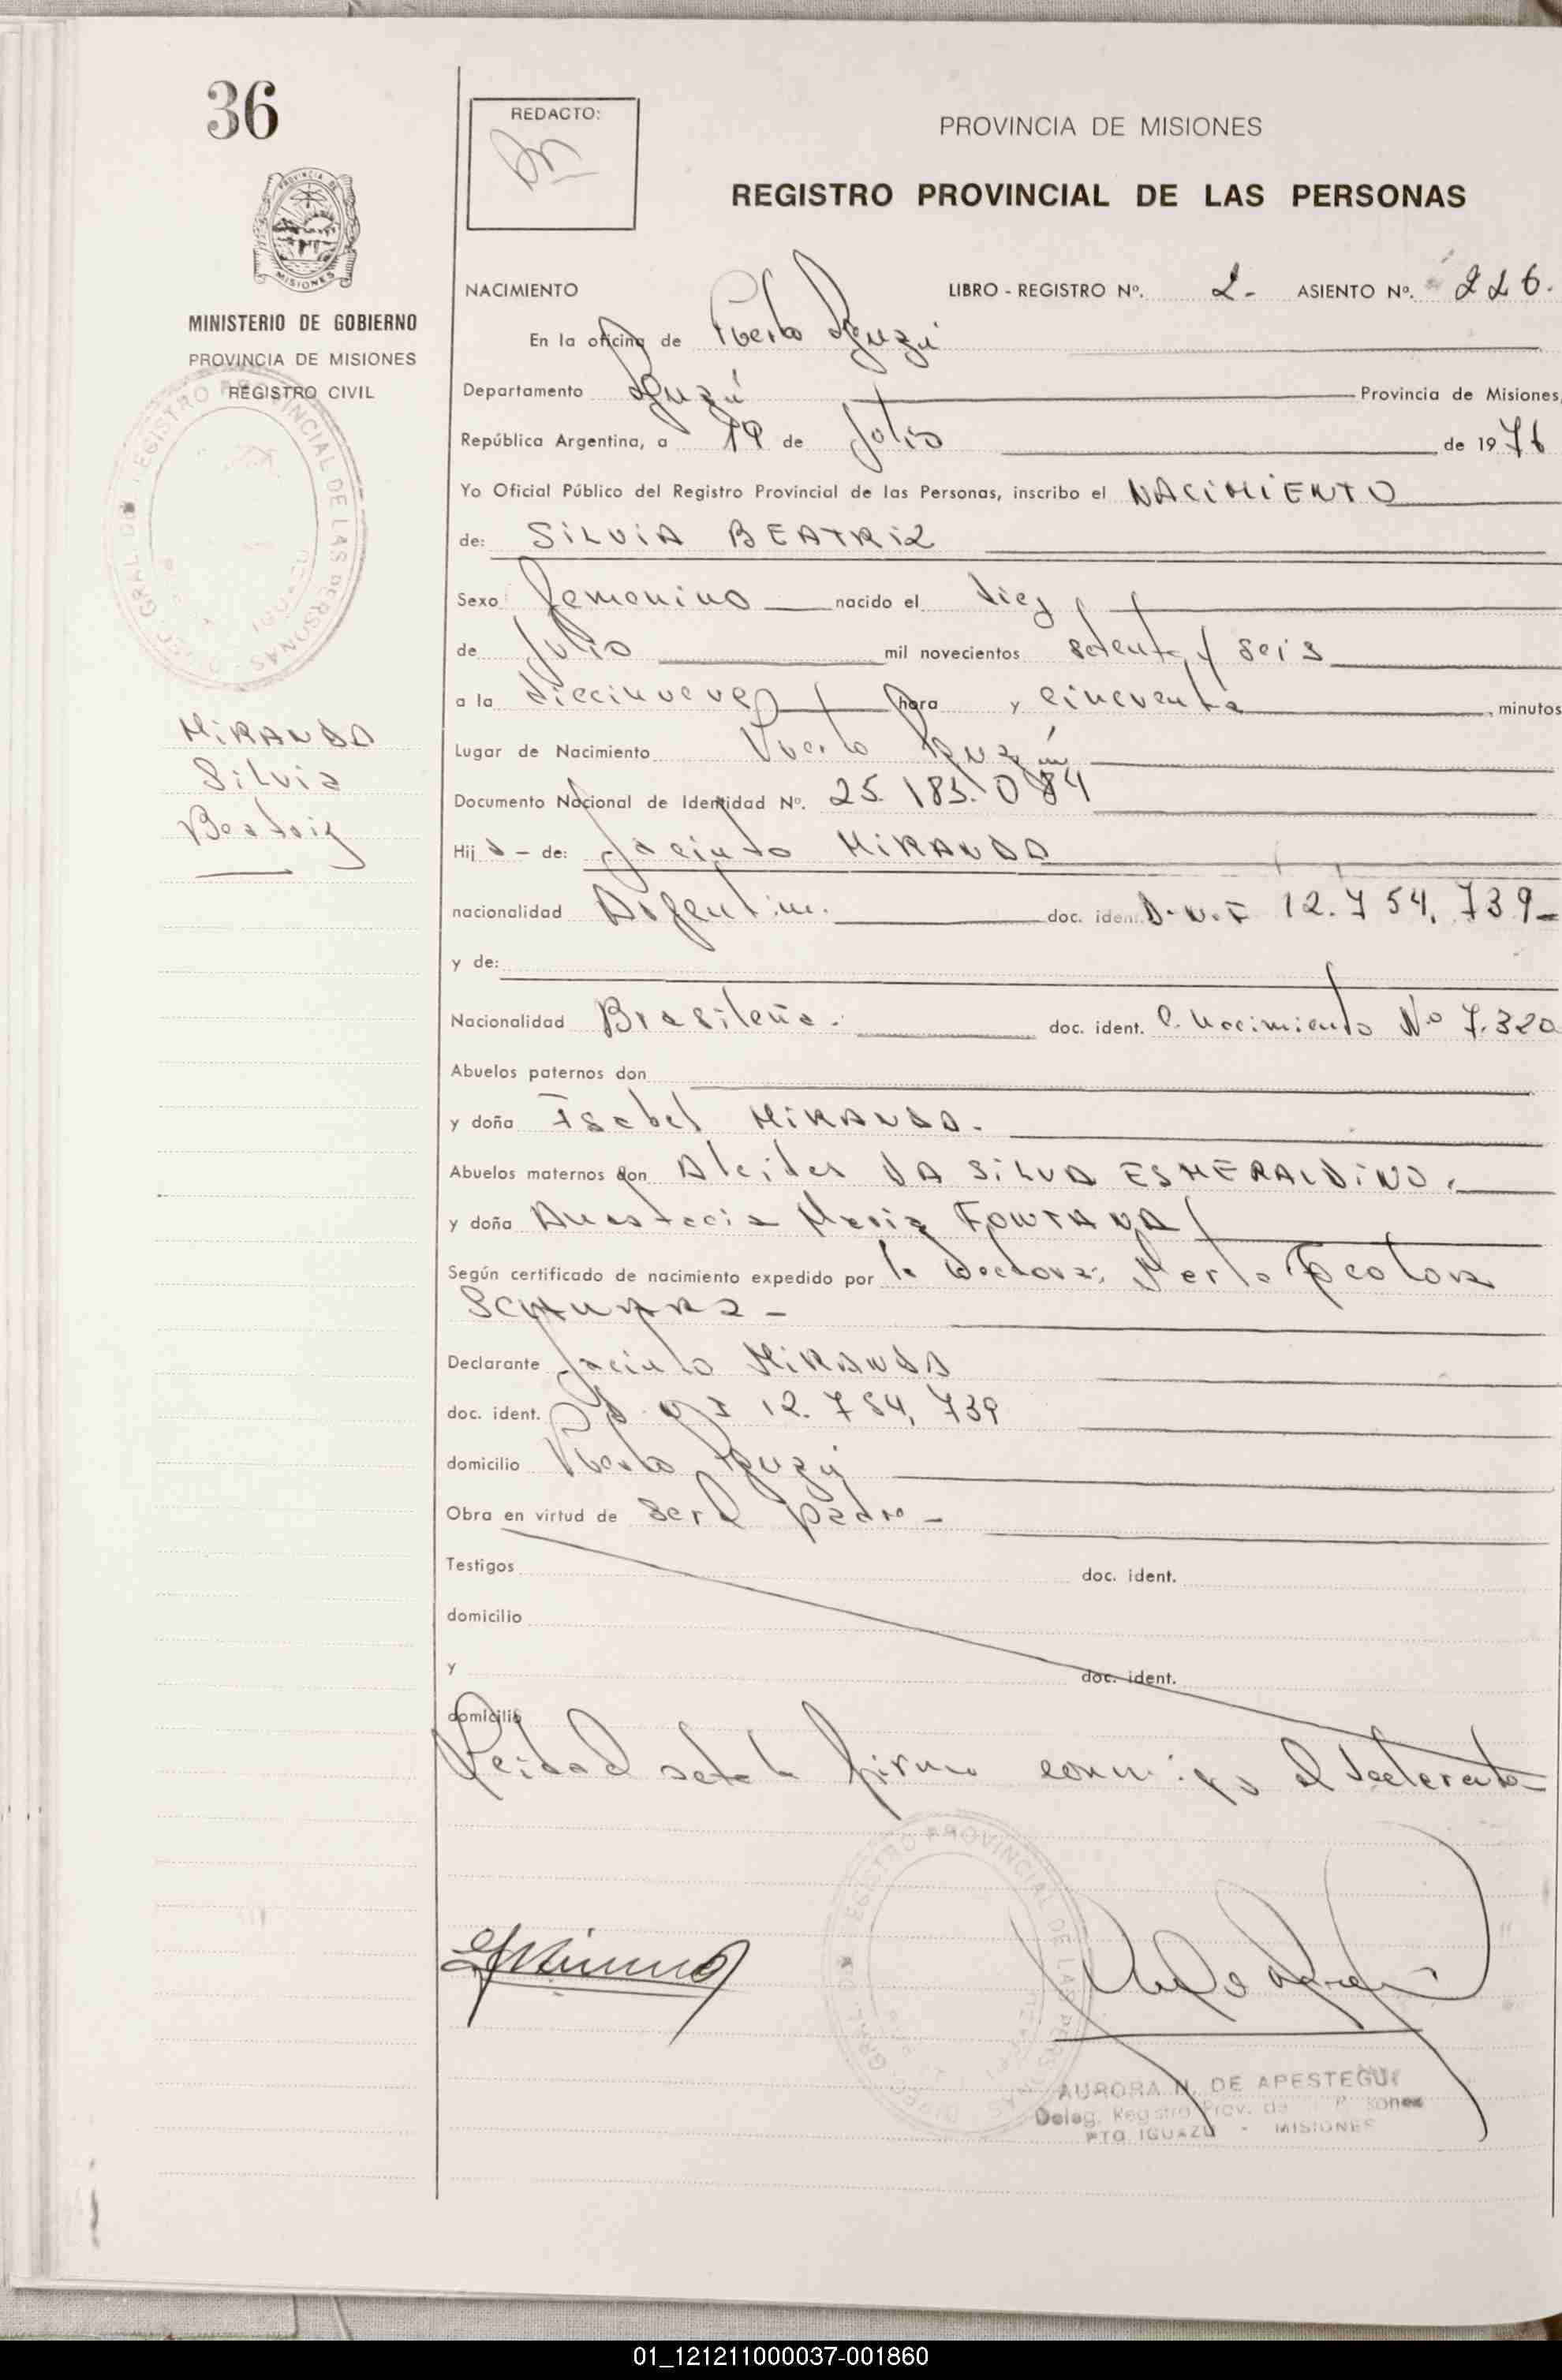 36
REDACTO:
PROVINCIA DE MISIONES
REGISTRO PROVINCIAL DE LAS PERSONAS
MISIONES
MINISTERIO DE GOBIERNO
PROVINCIA DE MISIONES
REGISTRO CIVIL
NACIMIENTO LIBRO - REGISTRO Nº. 2- ASIENTO Nº. 226.
En la oficina de Puerto Iguazú
Departamento Iguazú Provincia de Misiones,
República Argentina, a 19 de Julio de 1976
Yo Oficial Público del Registro Provincial de las Personas, inscribo el NACIMIENTO
de: SILVIA BEATRIZ
Sexo femenino nacido el diez
de Julio mil novecientos setenta y seis
a la diecinueve hora y cincuenta minutos
MIRANDA
Silvia
Beatriz
Lugar de Nacimiento Puerto Iguazú
Documento Nacional de Identidad Nº. 25.183.084
Hija - de: Jacinto MIRANDA
nacionalidad Argentina. doc. ident. D.N.I 12.754.739-
y de:
Nacionalidad Brasileña. doc. ident. C. Nacimiento Nº 7.320
Abuelos paternos don
y doña Isabel MIRANDA.
Abuelos maternos don Alcides DA SILVA ESMERALDINO.
y doña Anastacia Maria FONTANA
Según certificado de nacimiento expedido por la Doctora:
SCHWARZ -
Declarante Jacinto MIRANDA
doc. ident. D.N.I 12.754.739
domicilio Puerto Iguazú
Obra en virtud de ser el padre -
Testigos doc. ident.
domicilio
y doc. ident.
domicilio
Leida el acta la firma conmigo el declarante
REGISTRO PROVINCIAL DE LAS PERSONAS
AURORA N. DE APESTEGUI
Deleg. Registro Prov. de
PTO. IGUAZU - MISIONES
01_121211000037-001860